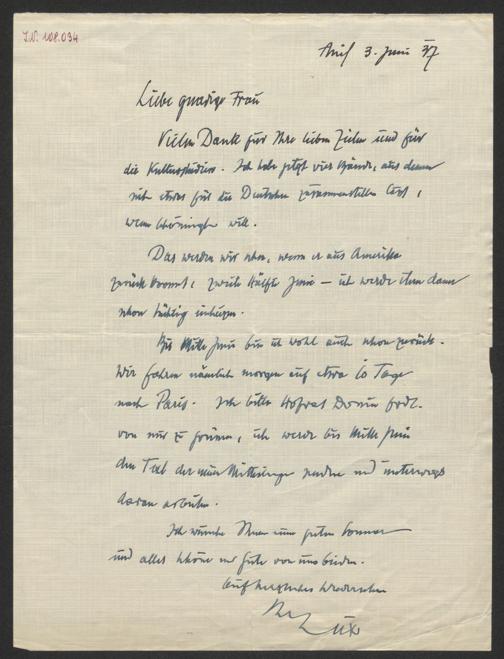 I.N. 108.034
Anif 3. Juni 37
Liebe gnaedige Frau
Vielen Dank für Ihre lieben Zeilen und für
die Kulturstudien. Ich habe jetzt vier Bände, aus denen
sich etwas für die Deutschen zusammenstellen lässt,
wenn will.
Das werden wir sehen, wenn er aus Amerika
zurück kommt, zweite Hälfte Juni — ich werde ihm dann
schon tüchtig
Bis Mitte Juni bin ich wohl auch schon zurück.
Wir fahren nämlich morgen auf etwa 10 Tage
nach Paris. Ich bitte Hofrat Donin frdl.
von mir z grüssen, ich werde bis Mitte Juni
den Text der neuen senden und unterwegs
daran arbeiten.
Ich wünsche Ihnen einen guten Sommer
und alles Schöne und Gute von uns beiden.
Auf herzliches Wiedersehen
Ihr Lux